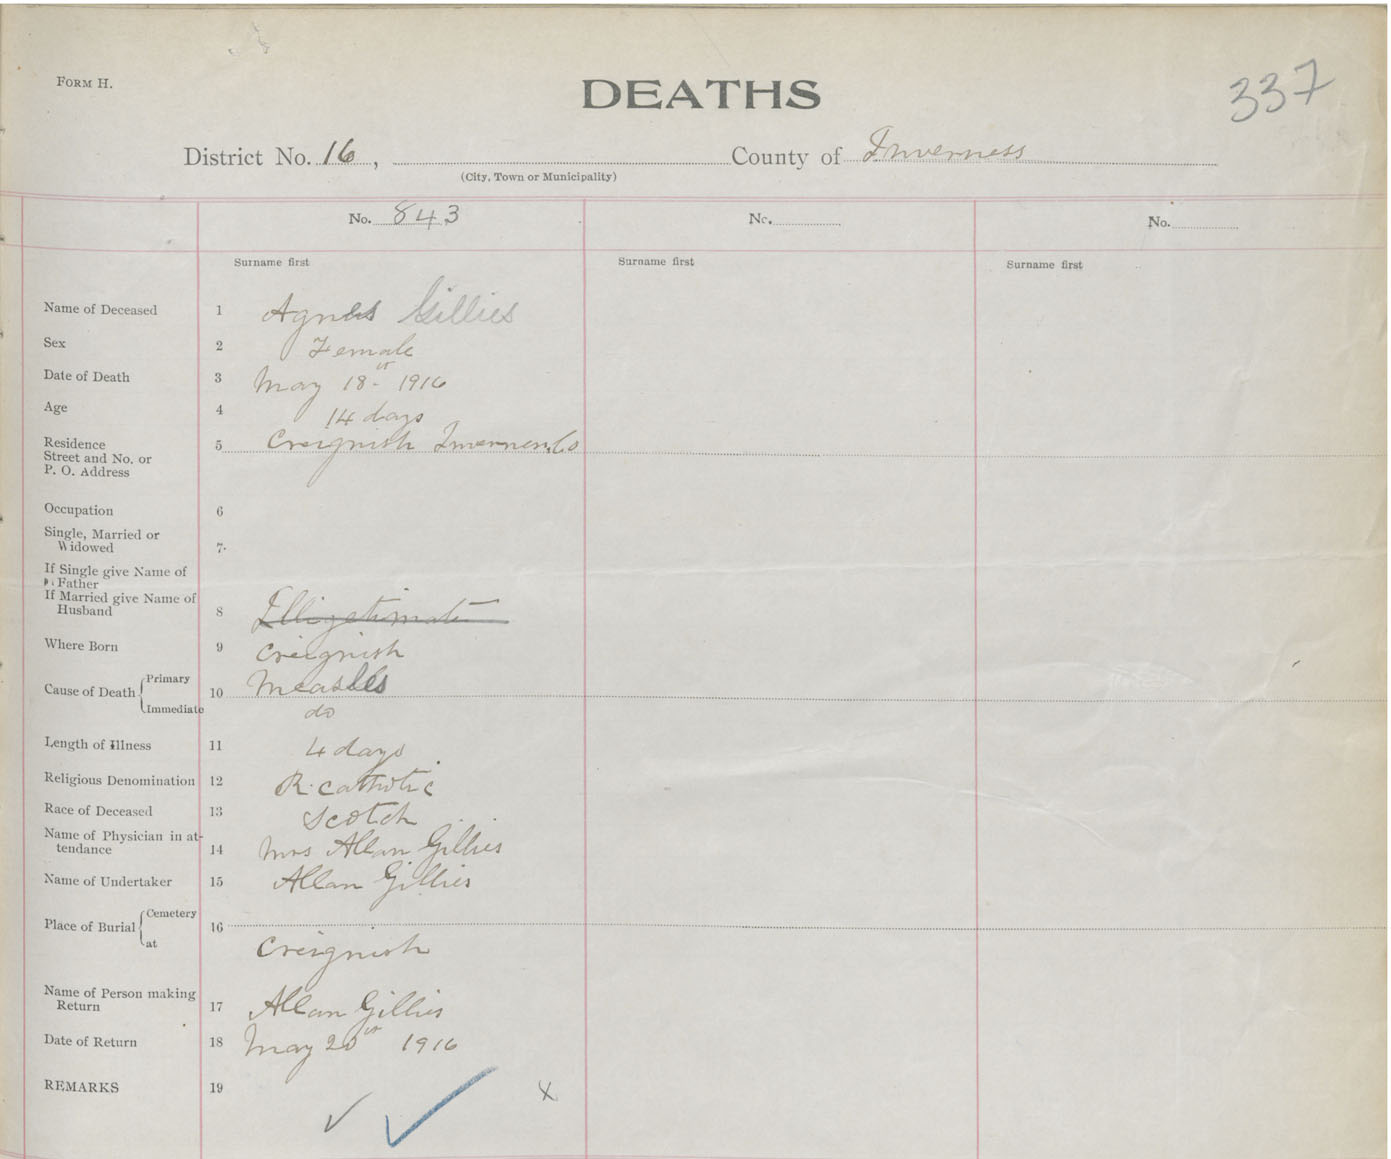 FORM H.
DEATHS
337
District No. 16, County of Inverness
(City, Town or Municipality)
No. 843 No. No.
Surname first Surname first Surname first
Name of Deceased 1 Agnes Gillies
Sex 2 Female
Date of Death 3 May 18th 1916
Age 4 14 days
Residence 5 Creignish Inverness Co
Street and No. or
P. O. Address
Occupation 6
Single, Married or
Widowed 7
If Single give Name of
Father
If Married give Name of
Husband 8 Illigetimate
Where Born 9 Creignish
Cause of Death Primary 10 Measles
Immediate do
Length of Illness 11 4 days
Religious Denomination 12 R. Catholic
Race of Deceased 13 Scotch
Name of Physician in at-
tendance 14 Mrs Allan Gillies
Name of Undertaker 15 Allan Gillies
Place of Burial Cemetery 16
at Creignish
Name of Person making
Return 17 Allan Gillies
Date of Return 18 May 20th 1916
REMARKS 19 x